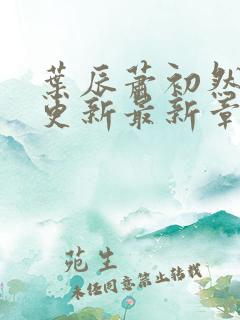 葉辰蕭初然
更新最新章
苑生
未经同意禁止转载